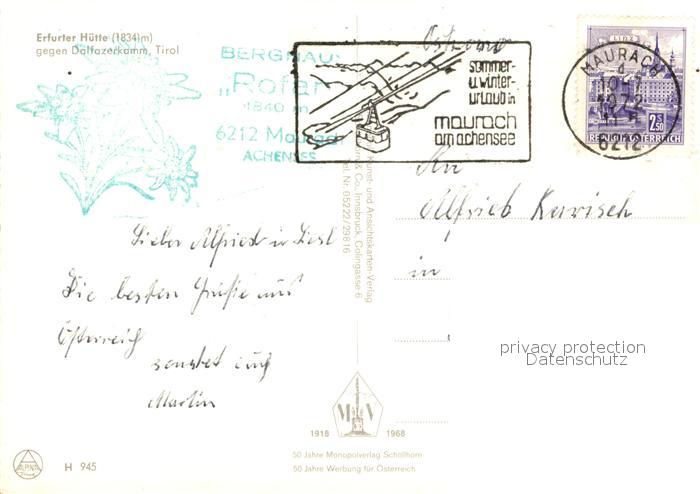 Erfurter Hütte (1834 m)
gegen Dalfazerkamm, Tirol
BERGHAUS
„Rofan"
1840 m
6212 Maurach
ACHENSEE
sommer-
u. winter-
urlaub in
maurach
am achensee
LINZ
MAURACH
1072
6212
2.50
REPUBLIK ÖSTERREICH
An
Alfried Karisch
in
Lieber Alfried u. Liesl
Die besten Grüße aus
Österreich
sendet euch
Martin
Kunst- und Ansichtskarten-Verlag
Co., Innsbruck, Colingasse 6
Tel. Nr. 05222/29816
privacy protection
Datenschutz
M V
1918 1968
50 Jahre Monopolverlag Schöllhorn
50 Jahre Werbung für Österreich
ALPINA
H 945